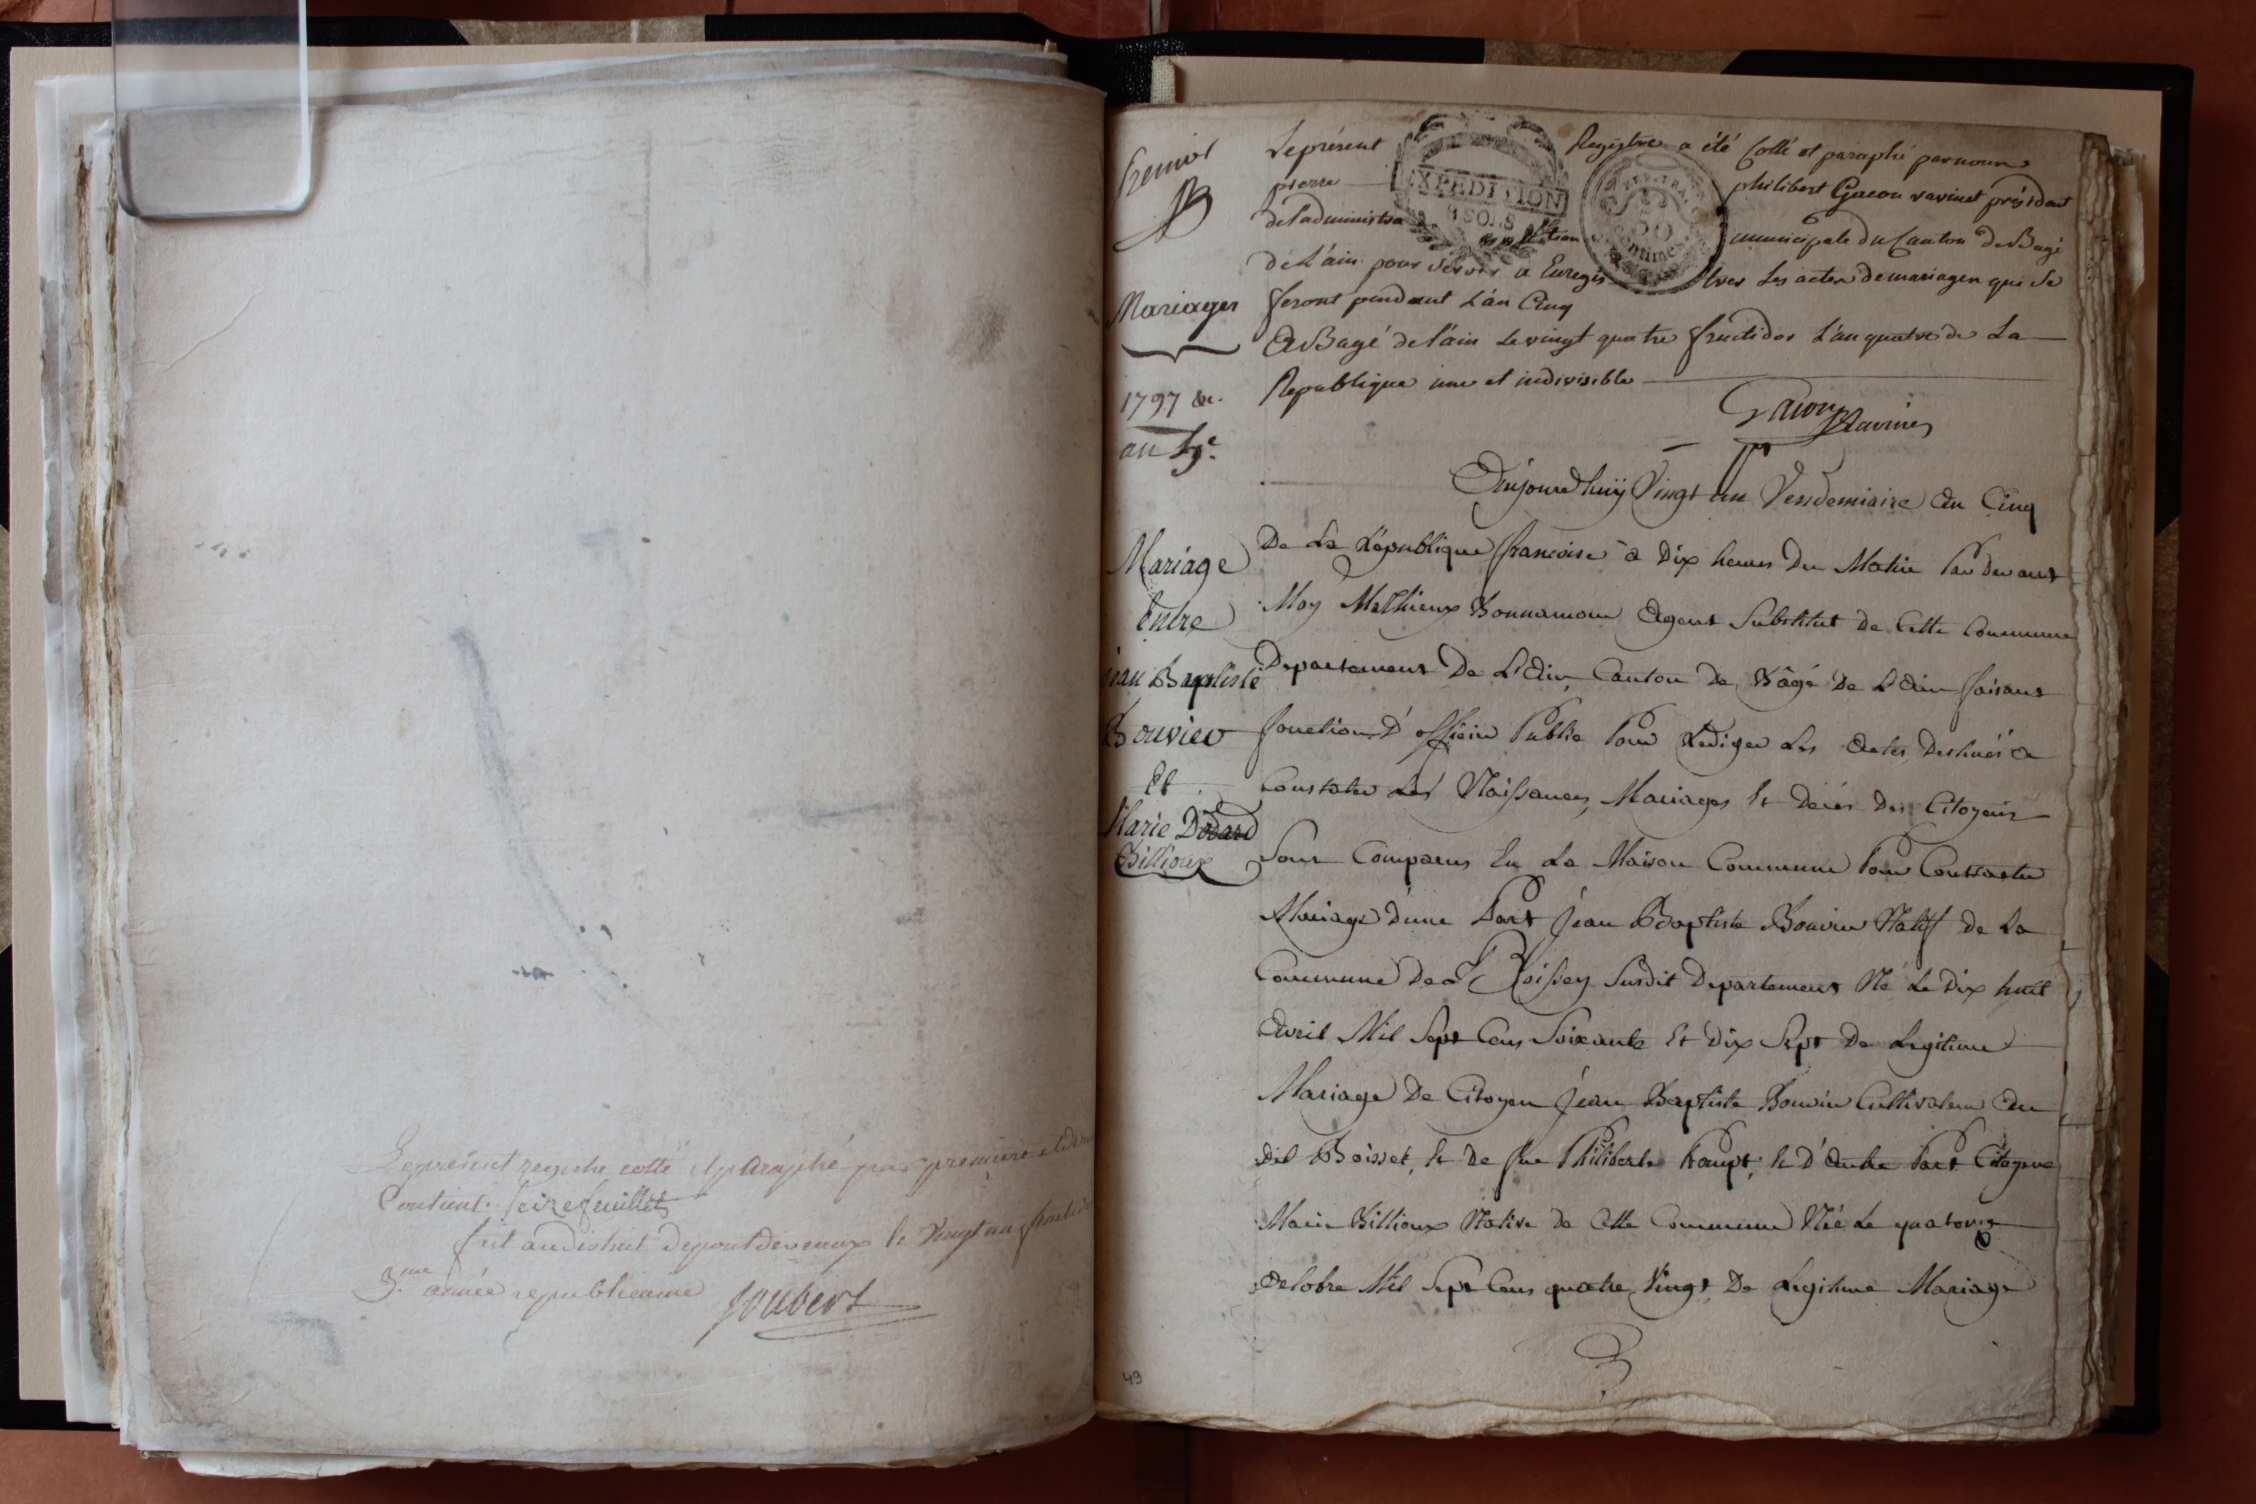 Le présent registre cotté et paraphé par première et
Contient seize feuillets
fait au district de pont de vaux le vingt un
3.me année republicaine
Joubert
Le présent Registre a été Cotté et paraphé par nous
pierre philibert Gacon ravinet président
de l'administration municipale du Canton de Bagé
EXPEDITION
de l'ain pour servir a Enregistrer Les actes de mariages qui se
Mariages
feront pendant L'an Cinq
A Bagé de l'ain Le vingt quatre fructidor L'an quatre de La
Republique une et indivisible
1797 &c.
an 5e.
Gacon Ravinet
Aujourdhuÿ Vingt un Vendemiaire an Cinq
De La République francoise a Dix heures Du Matin Par devant
Moy Mathieux Bonnamour Agent Substitut de Cette Commune
Departement De L'Ain Canton De Bâgé De L'Ain faisant
fonction D'officier Public Pour Rediger Les Actes Destinés a
Constater Les Naissances, Mariages Et Décès Des Citoyens
Sont Comparus En La Maison Commune Pour Contracter
Mariage d'une Part Jean Baptiste Bouvier Natif de La
Commune De Boissey Susdit Departement Né Le Dix huit
Avril Mil Sept Cens Soixante Et Dix Sept De Legitime
Mariage De Citoyen Jean Baptiste Bouvier Cultivateur Au
dit Boisset, Et De feue Philiberte Et D'Autre Part Citoyene
Marie Billioux Native de Cette Commune Née Le quatorze
Octobre Mil Sept Cens quatre Vingt De Legitime Mariage
Mariage
Entre
jean Baptiste
Bouvier
Et
Marie Dodard
Billioux
49